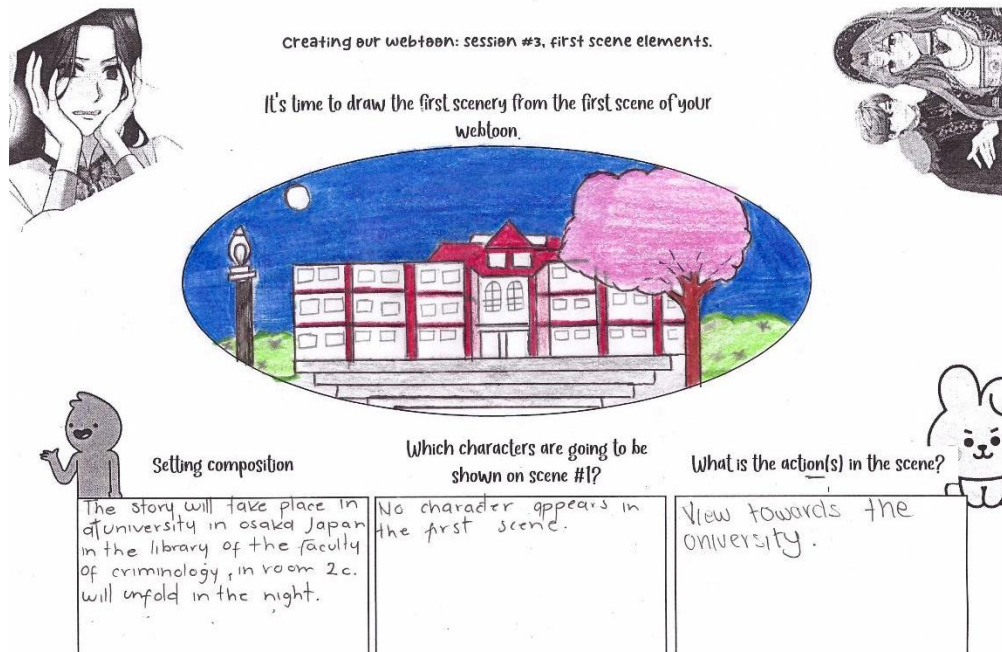 Creating our webtoon: session #3, first scene elements.
It's time to draw the first scenery from the first scene of your
webtoon.
Setting composition
The story will take place in
a university in osaka Japan
in the library of the faculty
of criminology, in room 2c.
will unfold in the night.
Which characters are going to be
shown on scene #1?
No character appears in
the first scene.
What is the action(s) in the scene?
View towards the
oniversity.